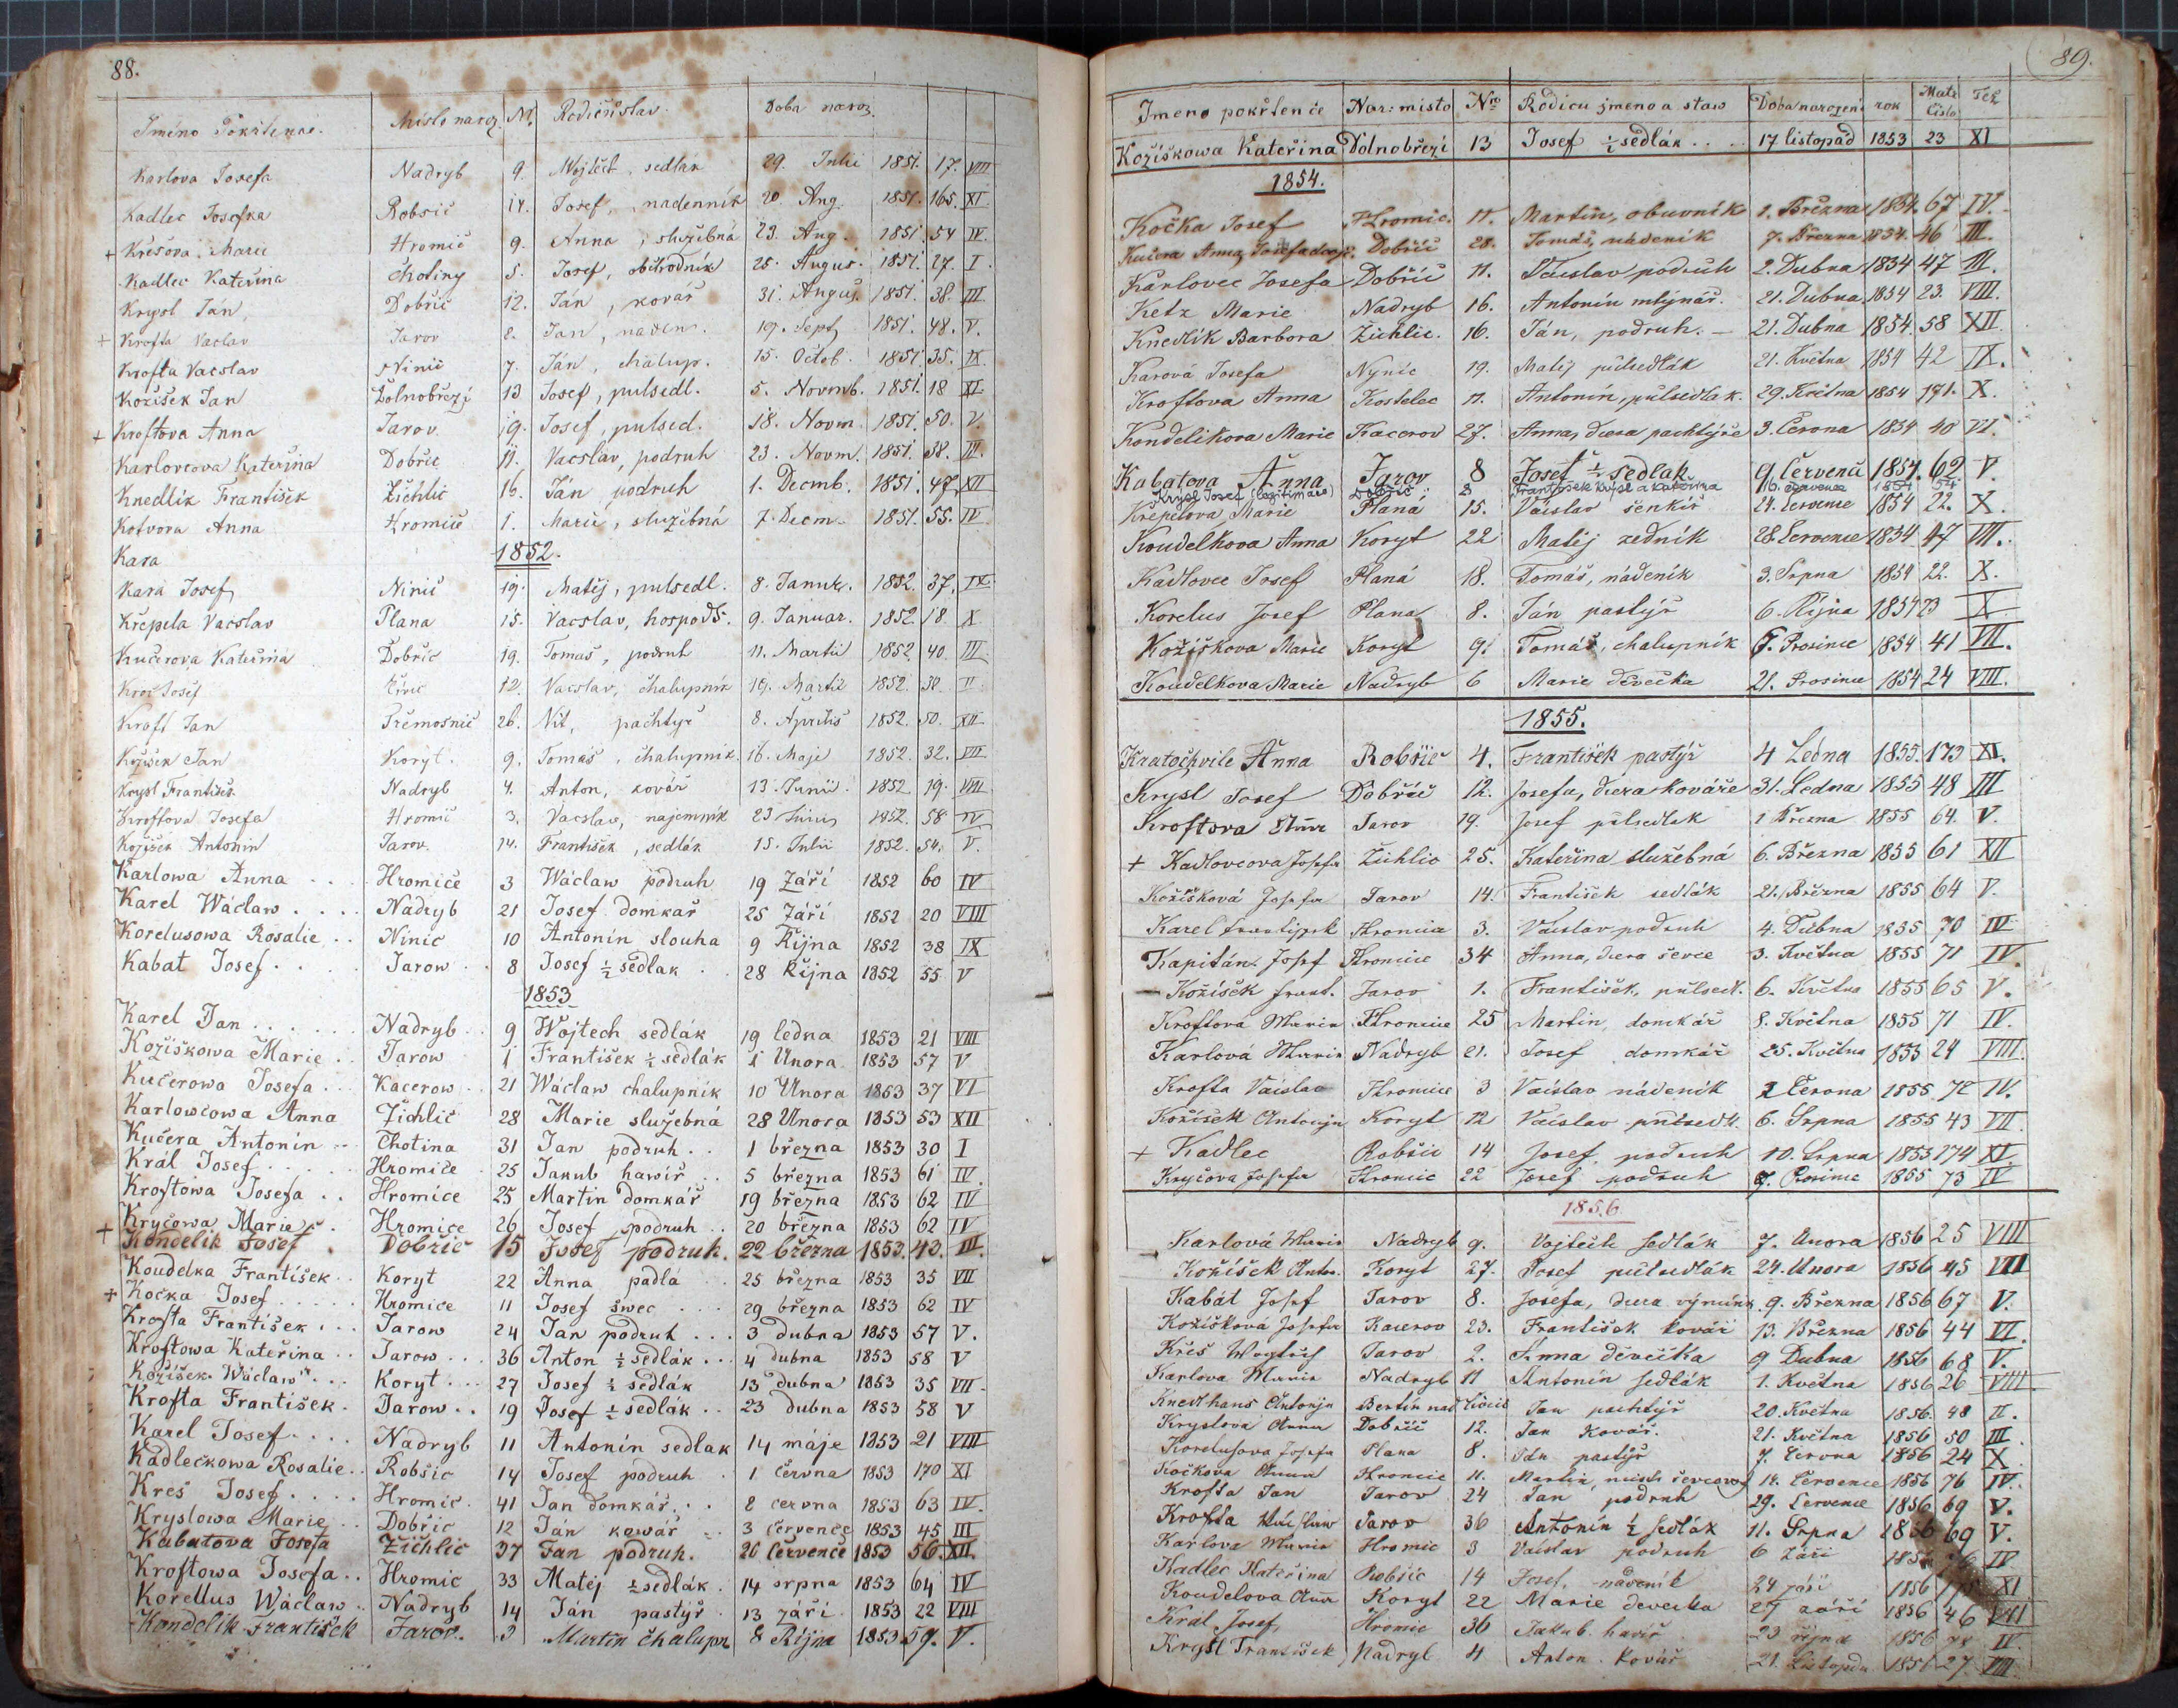 88.
Jméno Pokřtěnce. Místo naroz. N. Rodičů stav. Doba naroz.
Karlova Josefa Nadryb 9. Wojtěch, sedlák 29. Julii 1851. 17. VIII
Kadlec Josefka Robsič 14. Josef, nadenník 20. Aug. 1851. 165. XI
+ Křešova Marie Hromič 9. Anna, služebná 23. Aug. 1851. 54 IV.
Kadlec Kateřina Chotiny 5. Josef, obchodník 25. August. 1851. 27. I.
Krysl Ján, Dobřič 12. Ján, kovář 31. August. 1851. 38. III.
+ Krofta Vaclav Jarov 2. Jan, naden. 19. Sept. 1851. 48. V.
Krofta Vacslav Ninič 7. Ján, chalup. 15. Octob. 1851. 35. IX.
Kožišek Jan Dolnobřezí 13 Josef, pulsedl. 5. Novmb. 1851. 18 XI
+ Kroftova Anna Jarov 19. Josef, pulsed. 18. Novm. 1851. 50. V.
Karlovcova Kateřina Dobřič 11. Vacslav, podruh 23. Novm. 1851. 38. III.
Knedlík František Žichlic 16. Ján podruh 1. Decmb. 1851. 47. XII
Kotvora Anna Hromič 1. Marie, služebná 7. Decm. 1851. 55. IV
Kara 1852.
Kara Josef Ninič 19. Matěj, pulsedl. 8. Januar. 1852. 37. IX
Křepela Vacslav Plana 15. Vacslav, hospodř. 9. Januar. 1852. 18. X
Kučerova Kateřina Dobřič 19. Tomaš, podruh 11. Martii 1852. 40. III.
Josef 12. Vacslav, chalupník 19. Martii 1852. 38. II.
Kraft Jan Třemosnič 26. Vit, pachtýř 8. Aprilis 1852. 50. XII
Kožišek Jan Koryt. 9. Tomaš, chalupník. 16. Maji 1852. 32. VII
Krysl František Nadryb 4. Anton, kovář 13. Junii. 1852. 19. VIII
Kroftova Josefa Hromič 3. Vacslav, najemník 23 Junii 1852. 58 IV
Kožišek Antonin Jarov. 14. František, sedlák 15. Julii 1852. 54. V.
Karlowa Anna Hromiče 3 Wáclaw podruh 19 Září 1852 60 IV
Karel Wáclaw Nadryb 21 Josef domkář 25 Září 1852 20 VIII
Korelusowa Rosalie Ninic 10 Antonín slouha 9 Října 1852 38 IX
Kabat Josef Jarow 8 Josef ½ sedlak 28 Října 1852 55 V
1853
Karel Jan Nadryb 9 Wojtech sedlák 19 ledna 1853 21 VIII
Kožiškowa Marie Jarow 1 František ½ sedlák 1 Unora 1853 57 V
Kučerowa Josefa Kacerow 21 Wáclaw chalupník 10 Unora 1853 37 VI
Karlowcowa Anna Žichlič 28 Marie služebná 28 Unora 1853 53 XII
Kučera Antonín Chotina 31 Jan podruh 1 března 1853 30 I
Král Josef Hromiče 25 Jakub hawíř 5 března 1853 61 IV.
Kroftowa Josefa Hromice 25 Martin domkář 19 března 1853 62 IV
Kryčowa Marie Hromice 26 Josef podruh 20 března 1853 62 IV
+ Kondelík Josef Dobřič 15 Josef podruh. 22 března 1853. 43. III.
Koudelka František Koryt 22 Anna padlá 25 března 1853 35 VII
+ Kočka Josef Hromice 11 Josef šwec 29 března 1853 62 IV
Krofta František Jarow 24 Jan podruh 3 dubna 1853 57 V.
Kroftowa Kateřina Jarow 36 Anton ½ sedlák 4 dubna 1853 58 V
Kožíšek Wáclaw Koryt 27 Josef ½ sedlák 13 dubna 1853 35 VII
Krofta František Jarow 19 Josef ½ sedlak 23 dubna 1853 58 V
Karel Josef Nadryb 11 Antonín sedlak 14 máje 1853 21 VIII
Kadlečkowa Rosalie Robšic 14 Josef podruh 1 června 1853 170 XI
Kreš Josef Hromic. 41 Jan domkář 2 června 1853 63 IV.
Kryslowa Marie Dobřic 12 Ján kowář 3 července 1853 45 III
Kabatova Josefa Žichlic 37 Jan podruh. 26 Července 1853 56. XII.
Kroftowa Josefa Hromic 33 Matěj ½ sedlák 14 srpna 1853 64 IV
Korellus Wáclaw Nadryb 14 Ján pastýř 13 září 1853 22 VIII
Kondelík František Jarov. 3 Martin chalupn 8 Října 1853 59. V.
89.
Jmeno pokřtenče Nar: misto Nro Rodicu jmeno a staw Doba narozeni rok Matr Čislo Tež
Kožiškowa Kateřina Dolnobřezí 13 Josef ½ sedlák 17 listopad 1853 23 XI
1854.
Kočka Josef Hromic. 11. Martin, obuvník 1. Března 1854. 67 IV.
Kučera Anna, Josefa Dobřič 28. Tomáš, nádeník 7. Března 1854. 46 III.
Karlovec Josefa Dobřič 11. Václav podruh 2. Dubna 1854 47 III.
Ketz Marie Nadryb 16. Antonín mlýnář. 21. Dubna 1854 23. VIII.
Knedlík Barbora Žichlic. 16. Ján, podruh. 21. Dubna 1854. 58 XII.
Karová Josefa Nynic 19. Matěj půlsedlák 21. Května 1854 42 IX.
Kroftova Anna Kostelec 11. Antonín, půlsedlak. 29. Května 1854 171. X.
Kondelikova Marie Kacerov 27. Anna, dcera pachtýře 3. Června 1854 40 VI.
Kabatova Anna Jarov 8 Josef ½ sedlak 9. Červená 1854. 62 V.
Krysl Josef (legitimace) Dobřič 2 František Krysl a Kateřina 16. Července 1854 54
Křepelova Marie Plana 15. Václav šenkíř 24. Července 1854 22. X.
Koudelkova Anna Koryt 22 Matěj zedník 28. Července 1854 47 VII.
Kadlovec Josef Planá 18. Tomáš, nádeník 3. Srpna 1854 22. X.
Korelus Josef Plana 8. Ján pastýř 6. Října 1854 23 X
Kožíškova Marie Koryt 9. Tomáš, chalupník 7. Prosince 1854 41 VII.
Koudelkova Marie Nadryb 6 Marie děvečka 21. Prosince 1854 24 VIII.
1855.
Kratochvile Anna Robšic 4. František pastýř 4 Ledna 1855. 173 XI.
Krysl Josef Dobřič 12. Josefa, dcera kováře 31. Ledna 1855 48 III
Kroftova Anna Jarov 19. Josef půlsedlak 1 Března 1855 64. V.
+ Kadlovcova Josefa Žichlic 25. Kateřina služebná 6. Března 1855 61 XII
Kožíšková Josefa Jarov 14. František sedlák 21. Března 1855 64 V.
Karel František Hromice 3. Václav podruh 4. Dubna 1855 70 IV
Kapitán Josef Hromice 34 Anna, dcera ševce 3. Května 1855 71 IV.
Kožíšek frant. Jarov 1. František, půlsedl. 6. Května 1855 65 V.
Kroftova Marie Hromice 25 Martin, domkář 8. Května 1855 71 IV.
Karlová Marie Nadryb 21. Josef domkář 25. Května 1855 24 VIII.
Krofta Václav Hromice 3 Václav nádeník 2 Června 1855. 72 IV.
Kožíšek Antonín Koryt 12 Václav půlsedl. 6. Srpna 1855 43 VII.
+ Kadlec Robšic 14 Josef podruh 10. Srpna 1855 174 XI
Kryčova Josefa Hromic 22 Josef podruh 7. Prosince 1855 73 IV
1856
Karlová Marie Nadryb 9. Vojtěch sedlák 7. Unora 1856 25 VIII
Kožíšek Anton. Koryt 27. Josef půlsedlák 24. Unora 1856 45 VII
Kabát Josef Jarov 8. Josefa, dcera výměnk. 9. Března 1856 67 V.
Kožíšková Josefa Kacerov 23. František kovář 13. Března 1856 44 VI.
Kreš Wogtěch Jarov 2. Anna děvečka 9 Dubna 1856 68 V.
Karlova Marie Nadryb 11 Antonín sedlák 1. Května 1856 26 VIII.
Knedlhans Antonín Bertín nad Jan pachtýř 20. Května 1856. 48 II.
Kryslova Anna Dobřič 12. Jan Kovář. 21. Května 1856 50 III
Korelusova Josefa Plana 8. Jan pastýř 7. Června 1856 24 X
Kočkova Anna Hromic 11. Martin, mistr ševcovský 14. Července 1856 76 IV.
Krofta Jan Jarov 24 Jan podruh 29. Července 1856 69 V.
Krofta Václaw Jarov 36 Antonín ½ sedlák 11. Srpna 1856 69 V.
Karlova Marie Hromic 3 Václav podruh 6 Září IV
Kadlec Kateřina Robšic 14 Josef, nádeník 24 září 1856 XI
Koudelova Anna Koryt 22 Marie devecka 27 září 1856 46 VII
Král Josef Hromic 36 Jakub havíř 23 října 1856 78 IV.
Krysl František Nadryb 4 Anton. Kovář 21. Listopadu 27. VIII